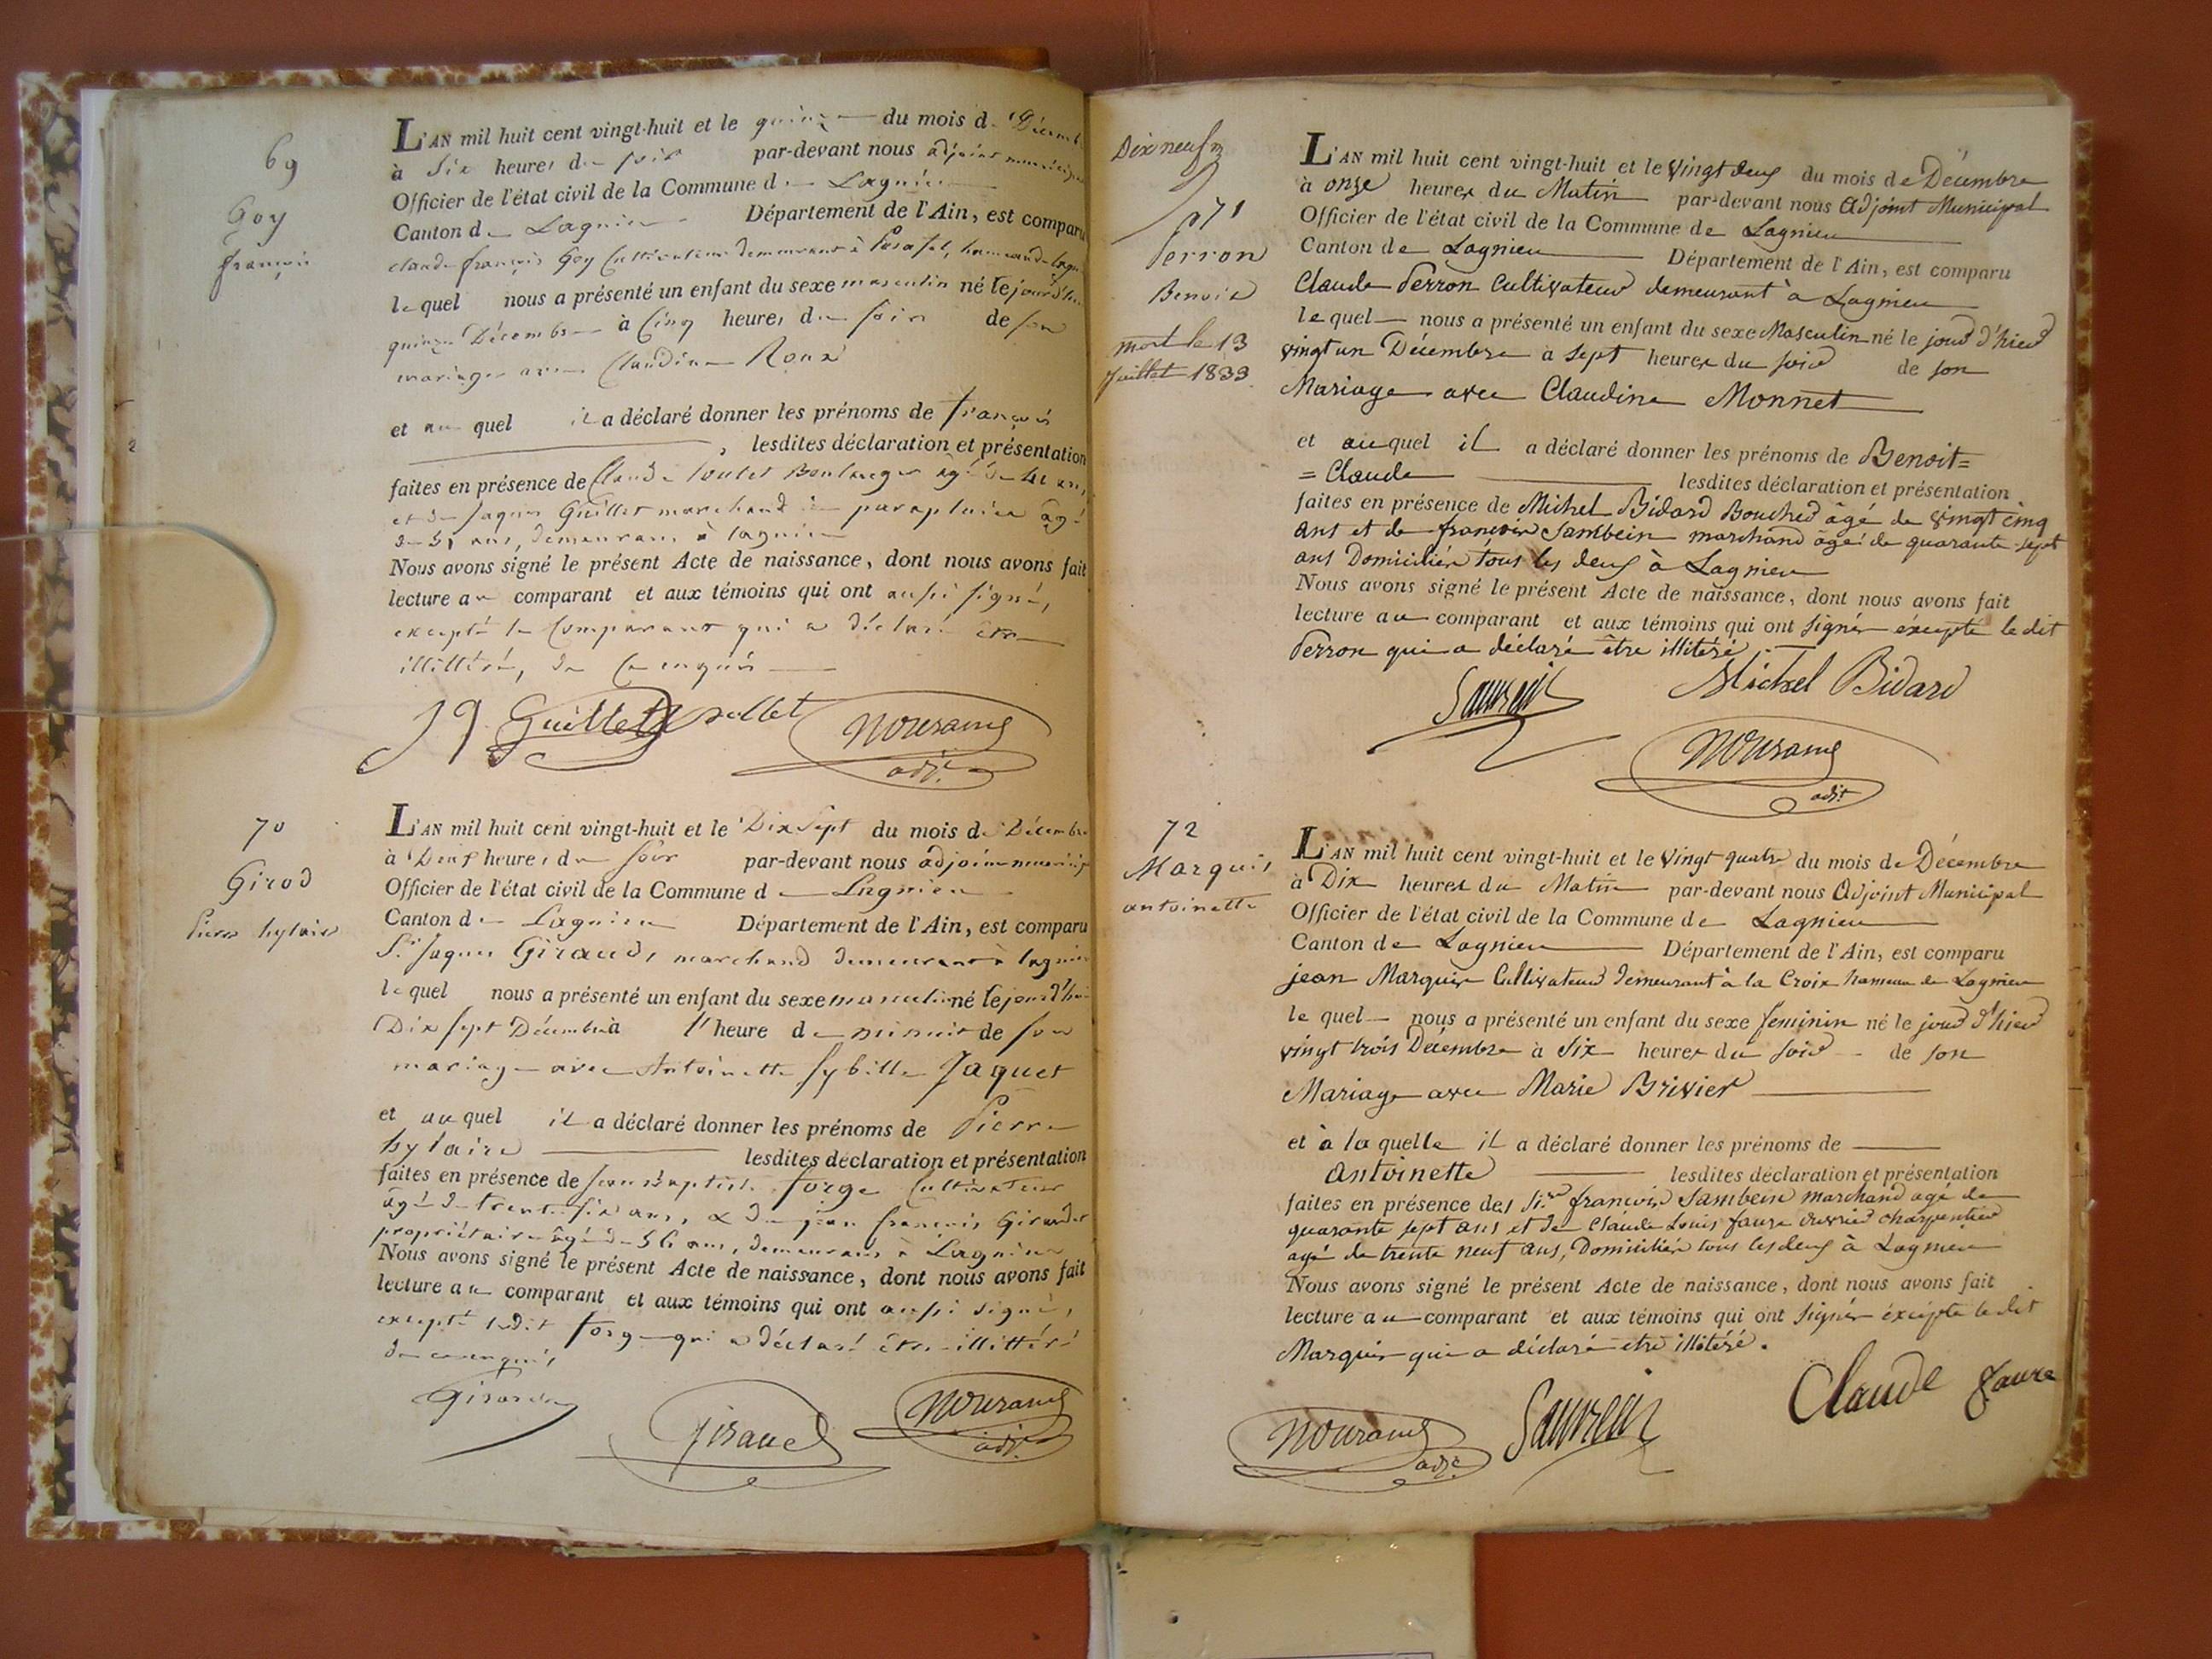 69
Goy
françois
L'AN mil huit cent vingt-huit et le quinze du mois de Décemb
à Six heures du soir par-devant nous adjoint municipal
Officier de l'état civil de la Commune de Lagnieu
Canton de Lagnieu Département de l'Ain, est comparu
claude françois Goy Cultivateur demeurant à Posafol, hameau de lagn
lequel nous a présenté un enfant du sexe masculin né le jourd'hui
quinze Décembre à Cinq heures du soir de son
mariage avec Claudine Roux
et au quel il a déclaré donner les prénoms de françois
, lesdites déclaration et présentation
faites en présence de Claude Boulanger âgé de 41 ans,
et de Jaques Guillet marchand de parapluies âgé
de 51 ans, demeurans à lagnieu
Nous avons signé le présent Acte de naissance, dont nous avons fait
lecture au comparant et aux témoins qui ont aussi signé,
excepté le Comparant qui a déclaré être
illittéré, de ce enquis
J G Guillet nourame
adjt
70
Girod
Pierre hylaire
L'AN mil huit cent vingt-huit et le Dix Sept du mois de Décembre
à Deux heures du soir par-devant nous adjoint municip
Officier de l'état civil de la Commune de Lagnieu
Canton de Lagnieu Département de l'Ain, est comparu
Sr. Jaques Giraud, marchand demeurant à lagnieu
lequel nous a présenté un enfant du sexe masculin né le jourd'hui
Dix sept Décembre à l'heure de minuit de son
mariage avec Antoinette Sybille Jaquet
et au quel il a déclaré donner les prénoms de Pierre
hylaire lesdites déclaration et présentation
faites en présence de Jean Baptiste forge Cultivateur
âgé de trente six ans, & de jean françois Girardet
propriétaire âgé de 56 ans, demeurans à Lagnieu
Nous avons signé le présent Acte de naissance, dont nous avons fait
lecture au comparant et aux témoins qui ont aussi signé,
excepté ledit forge qui a déclaré être illittéré
de ce enquis,
Giraud nourame
adjt
Dix neuf
71
Perron
Benoit
mort le 13
Juillet 1833
L'AN mil huit cent vingt-huit et le vingt deux du mois de Décembre
à onze heures du Matin par-devant nous Adjoint Municipal
Officier de l'état civil de la Commune de Lagnieu
Canton de Lagnieu Département de l'Ain, est comparu
Claude Perron Cultivateur demeurant à Lagnieu
lequel nous a présenté un enfant du sexe Masculin né le jour d'hier
vingt un Décembre à sept heures du soir de son
Mariage avec Claudine Monnet
et auquel il a déclaré donner les prénoms de Benoit=
=Claude lesdites déclaration et présentation
faites en présence de Michel Bidard Boucher âgé de vingt cinq
ans et de françois Sambein marchand âgé de quarante sept
ans Domiciliés tous les deux à Lagnieu
Nous avons signé le présent Acte de naissance, dont nous avons fait
lecture au comparant et aux témoins qui ont signés éxcepté le dit
Perron qui a déclaré être illitéré
Michel Bidard
nourame
adjt
72
Marquis
antoinette
L'AN mil huit cent vingt-huit et le vingt quatre du mois de Décembre
à Dix heures du Matin par-devant nous Adjoint Municipal
Officier de l'état civil de la Commune de Lagnieu
Canton de Lagnieu Département de l'Ain, est comparu
jean Marquis Cultivateur demeurant à la Croix hameau de Lagnieu
le quel nous a présenté un enfant du sexe feminin né le jour d'hier
vingt trois Décembre à Six heures du soir de son
Mariage avec Marie Brivier
et à la quelle il a déclaré donner les prénoms de
antoinette lesdites déclaration et présentation
faites en présence des Srs françois Sambein marchand agé de
quarante sept ans et de Claude Louis faure ouvrier charpentier
agé de trente neuf ans, Domiciliés tous les deux à Lagnieu
Nous avons signé le présent Acte de naissance, dont nous avons fait
lecture au comparant et aux témoins qui ont signés éxcepté le dit
Marquis qui a déclaré être illitéré.
nourame adjt Claude faure